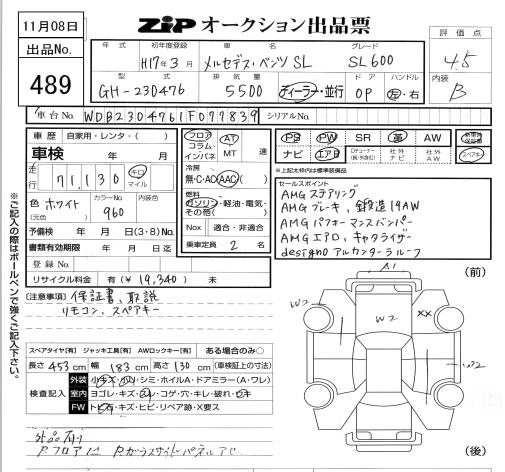 11月08日
ZIP オークション出品票
評価点
4.5
内装
B
出品No.
489
年式 初年度登録 車名 グレード
H17年3月 メルセデス・ベンツ SL SL600
型式 排気量 ドア ハンドル
GH-230476 5500 ディーラー・並行 OP 左・右
車台No. WDB2304761F077839 シリアルNo.
車歴 自家用・レンタ・( )
車検 年 月
走行 71,130 キロ マイル
色 ホワイト (元色) カラーNo. 960 内装色
予備検 年 月 日(3・8)No.
書類有効期限 年 月 日迄
登録No.
リサイクル料金 有(¥ 19,340) 無
フロア コラム・インパネ AT MT 速
冷房
無・C・AD・AAC( )
燃料
ガソリン・軽油・電気・その他( )
Nox 適合・非適合
乗車定員 2 名
PS PW SR 革 AW
ナビ エアB Dチューナー(純・外含む) 社外ナビ 社外AW
新車時保証書
スペアキー
*上記太枠内は標準装備品
セールスポイント
AMGステアリング
AMGブレーキ、鍛造19AW
AMGパフォーマンスバンパー
AMGエアロ、キャタライザー
designoアルカンターラルーフ
(注意事項) 保証書、取説
リモコン、スペアキー
※ご記入の際はボールペンで強くご記入下さい。
スペアタイヤ[有] ジャッキ工具[有] AWロックキー[有] ある場合のみ○
長さ 453 cm 幅 183 cm 高さ 130 cm (車検証上の寸法)
検査記入
外装 小キズ・凹・シミ・ホイルA・ドアミラー(A・ワレ)
室内 ヨゴレ・キズ・コゲ・穴・キレ・破れ・
FW トビ石・キズ・ヒビ・リペア跡・X要ス
(前)
A1
W2
W2
XX
W2
(後)